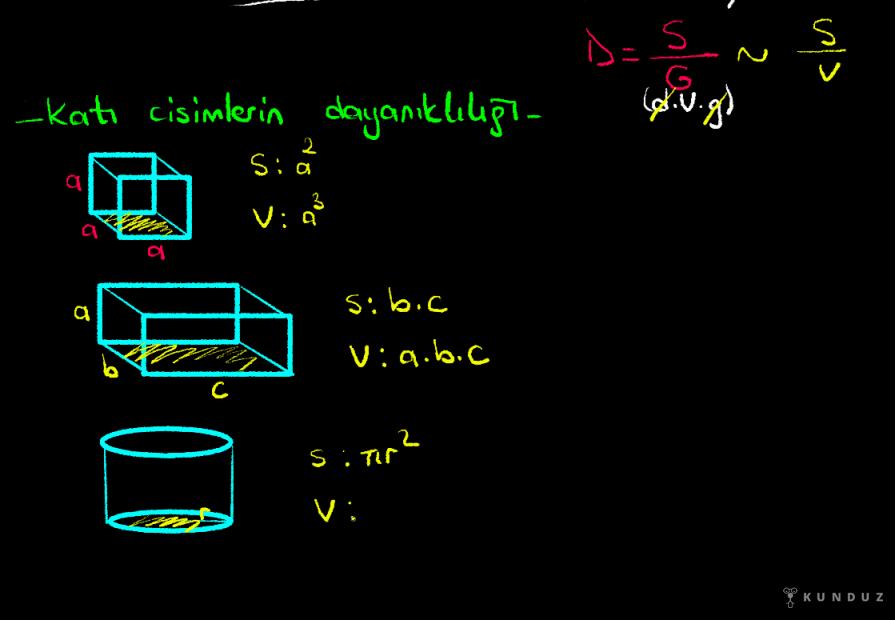 D = S/G ~ S/V
(d.V.g)
-Katı cisimlerin dayanıklılığı-
a
a
a
S: a²
V: a³
a
b
c
S: b.c
V: a.b.c
r
S: πr²
V:
KUNDUZ